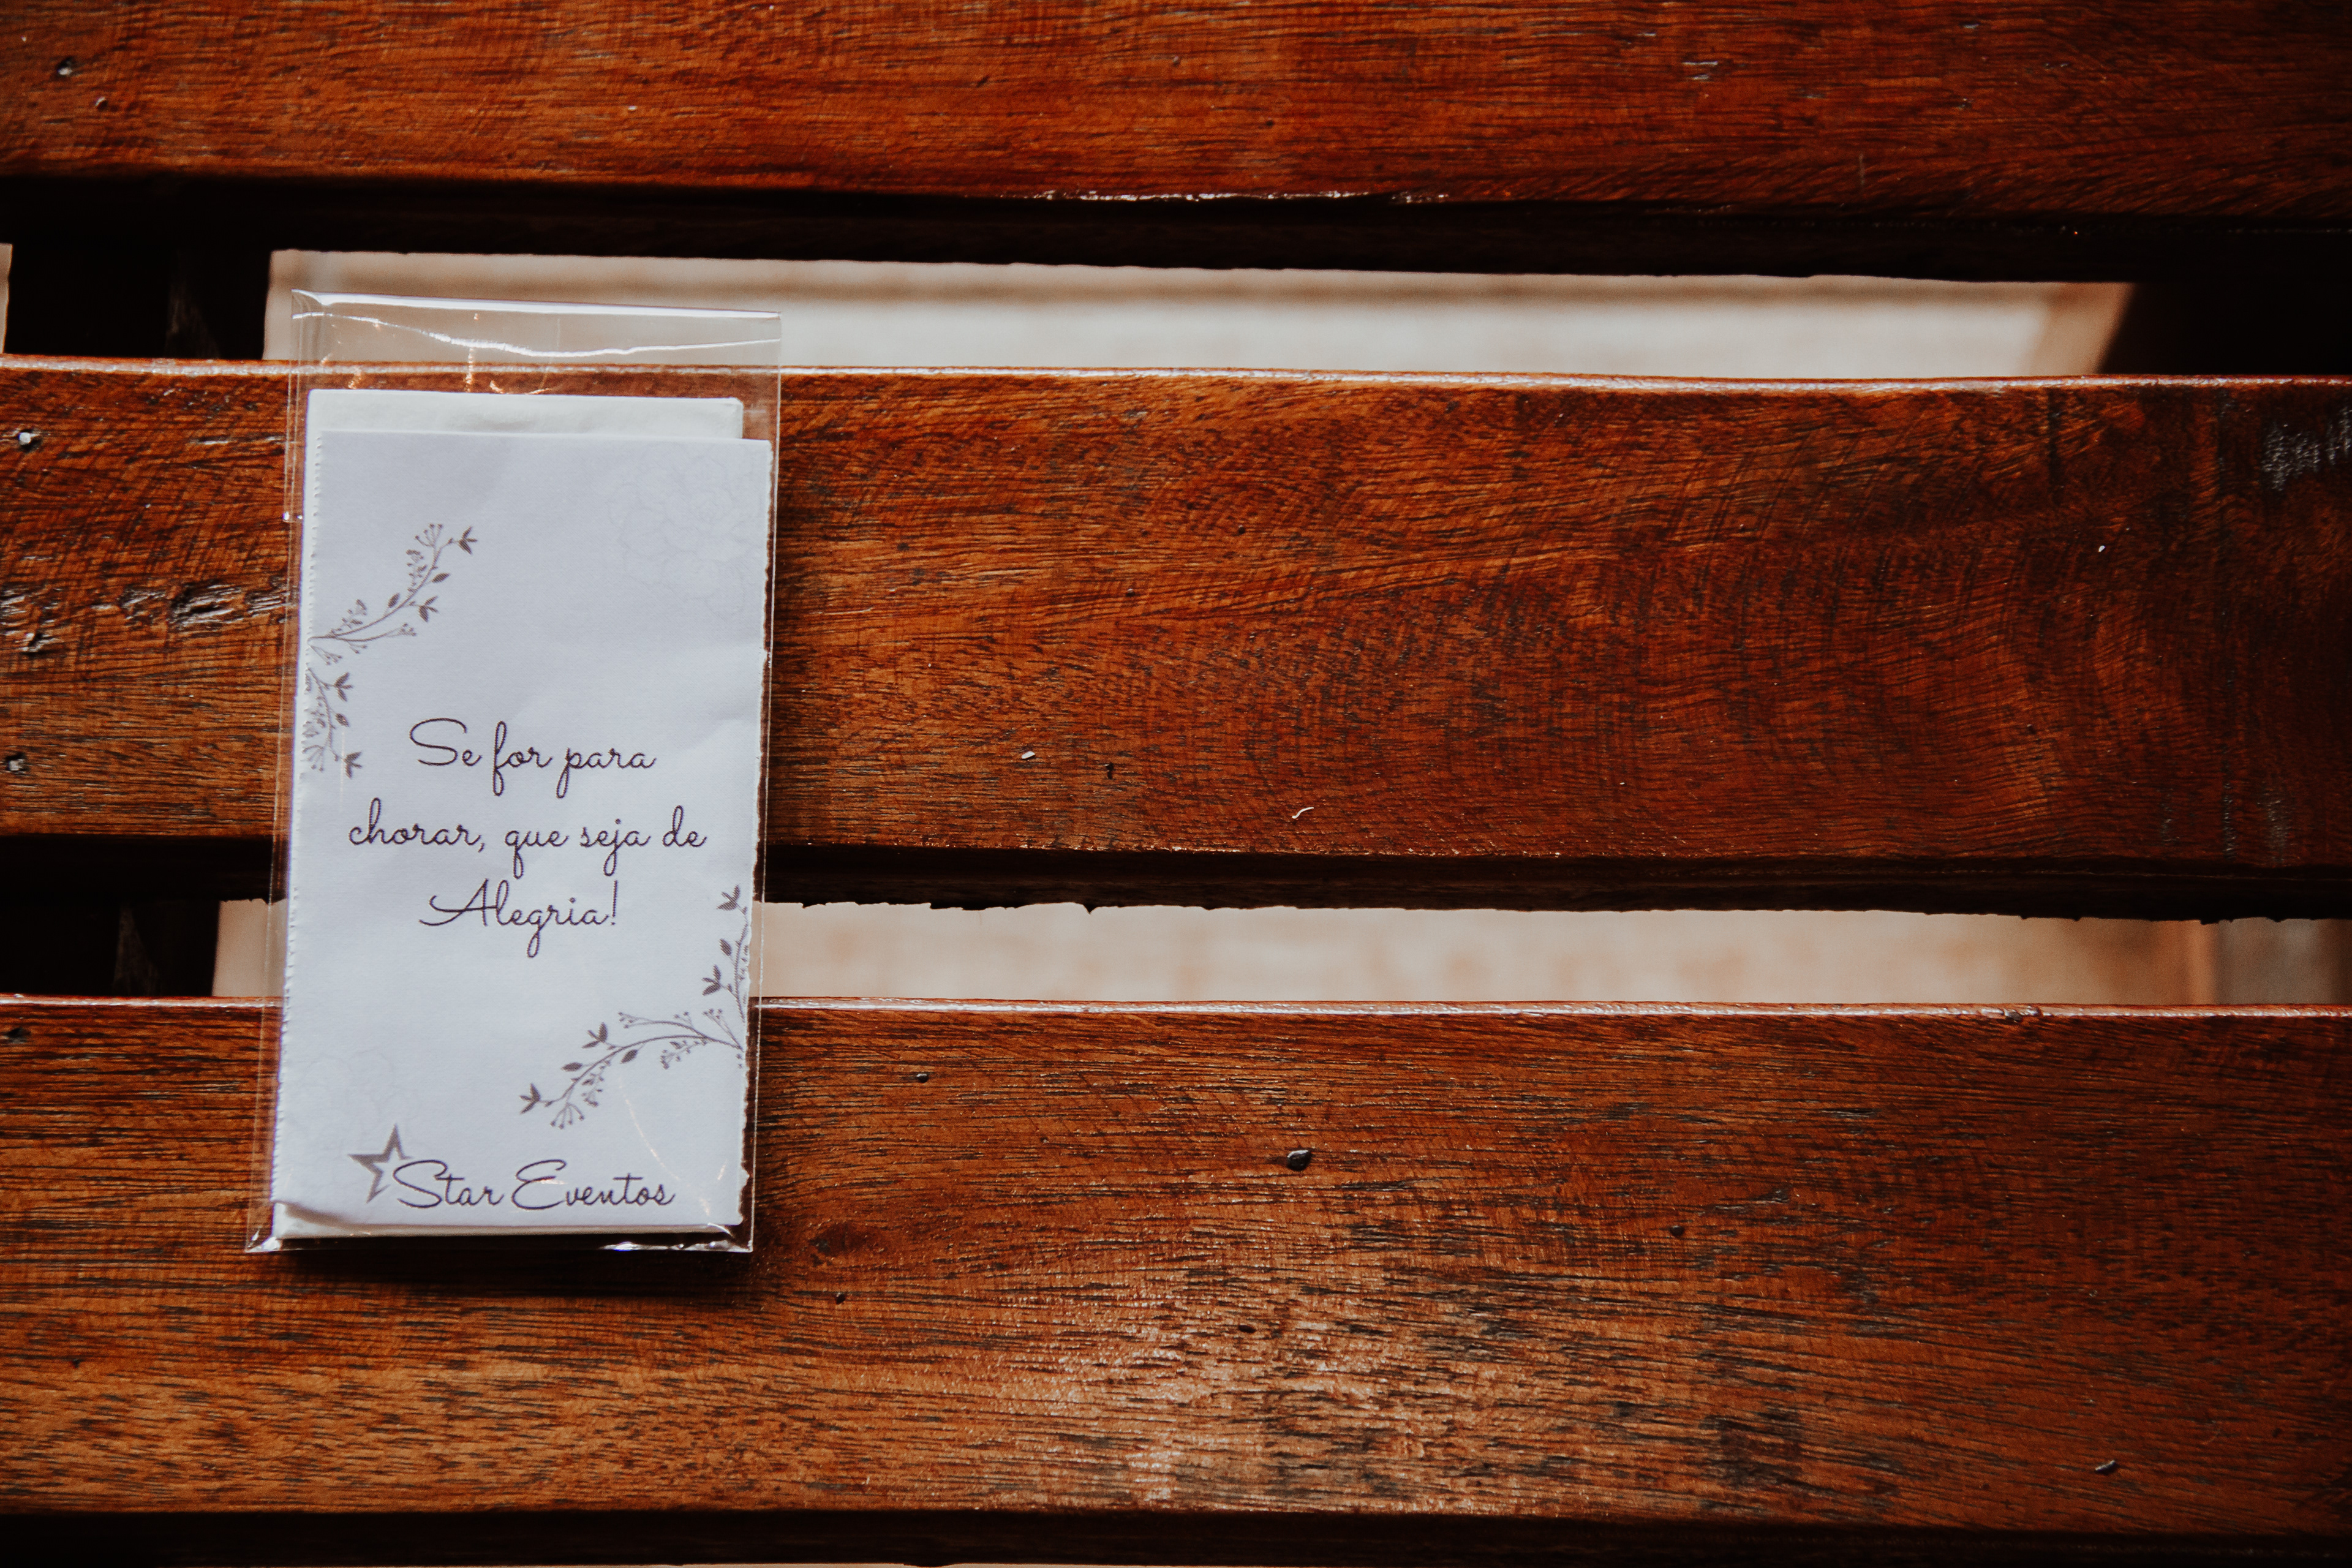 Se for para
chorar, que seja de
Alegria!
Star Eventos